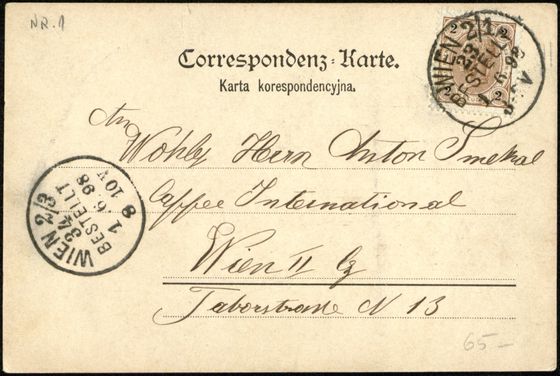 NR. 1
WIEN 2/1
BESTELLT
1 6 98
Correspondenz-Karte.
Karta korespondencyjna.
An
Wohlg Herrn Anton Smekal
Caffee International
Wien II
Taborstrasse N 13
WIEN 2/3
34
BESTELLT
1. 6. 98
8 10V
65-